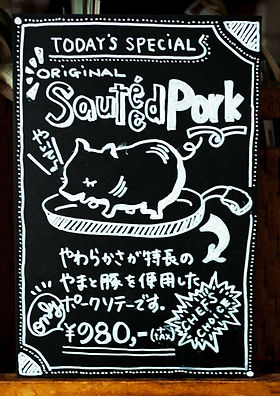 TODAY'S SPECIAL
ORIGINAL
Sautéed Pork
やわらかさが特長の
やまと豚を使用した
ポークソテーです。
only
¥980,-(+TAX)
CHEF'S
CHOICE